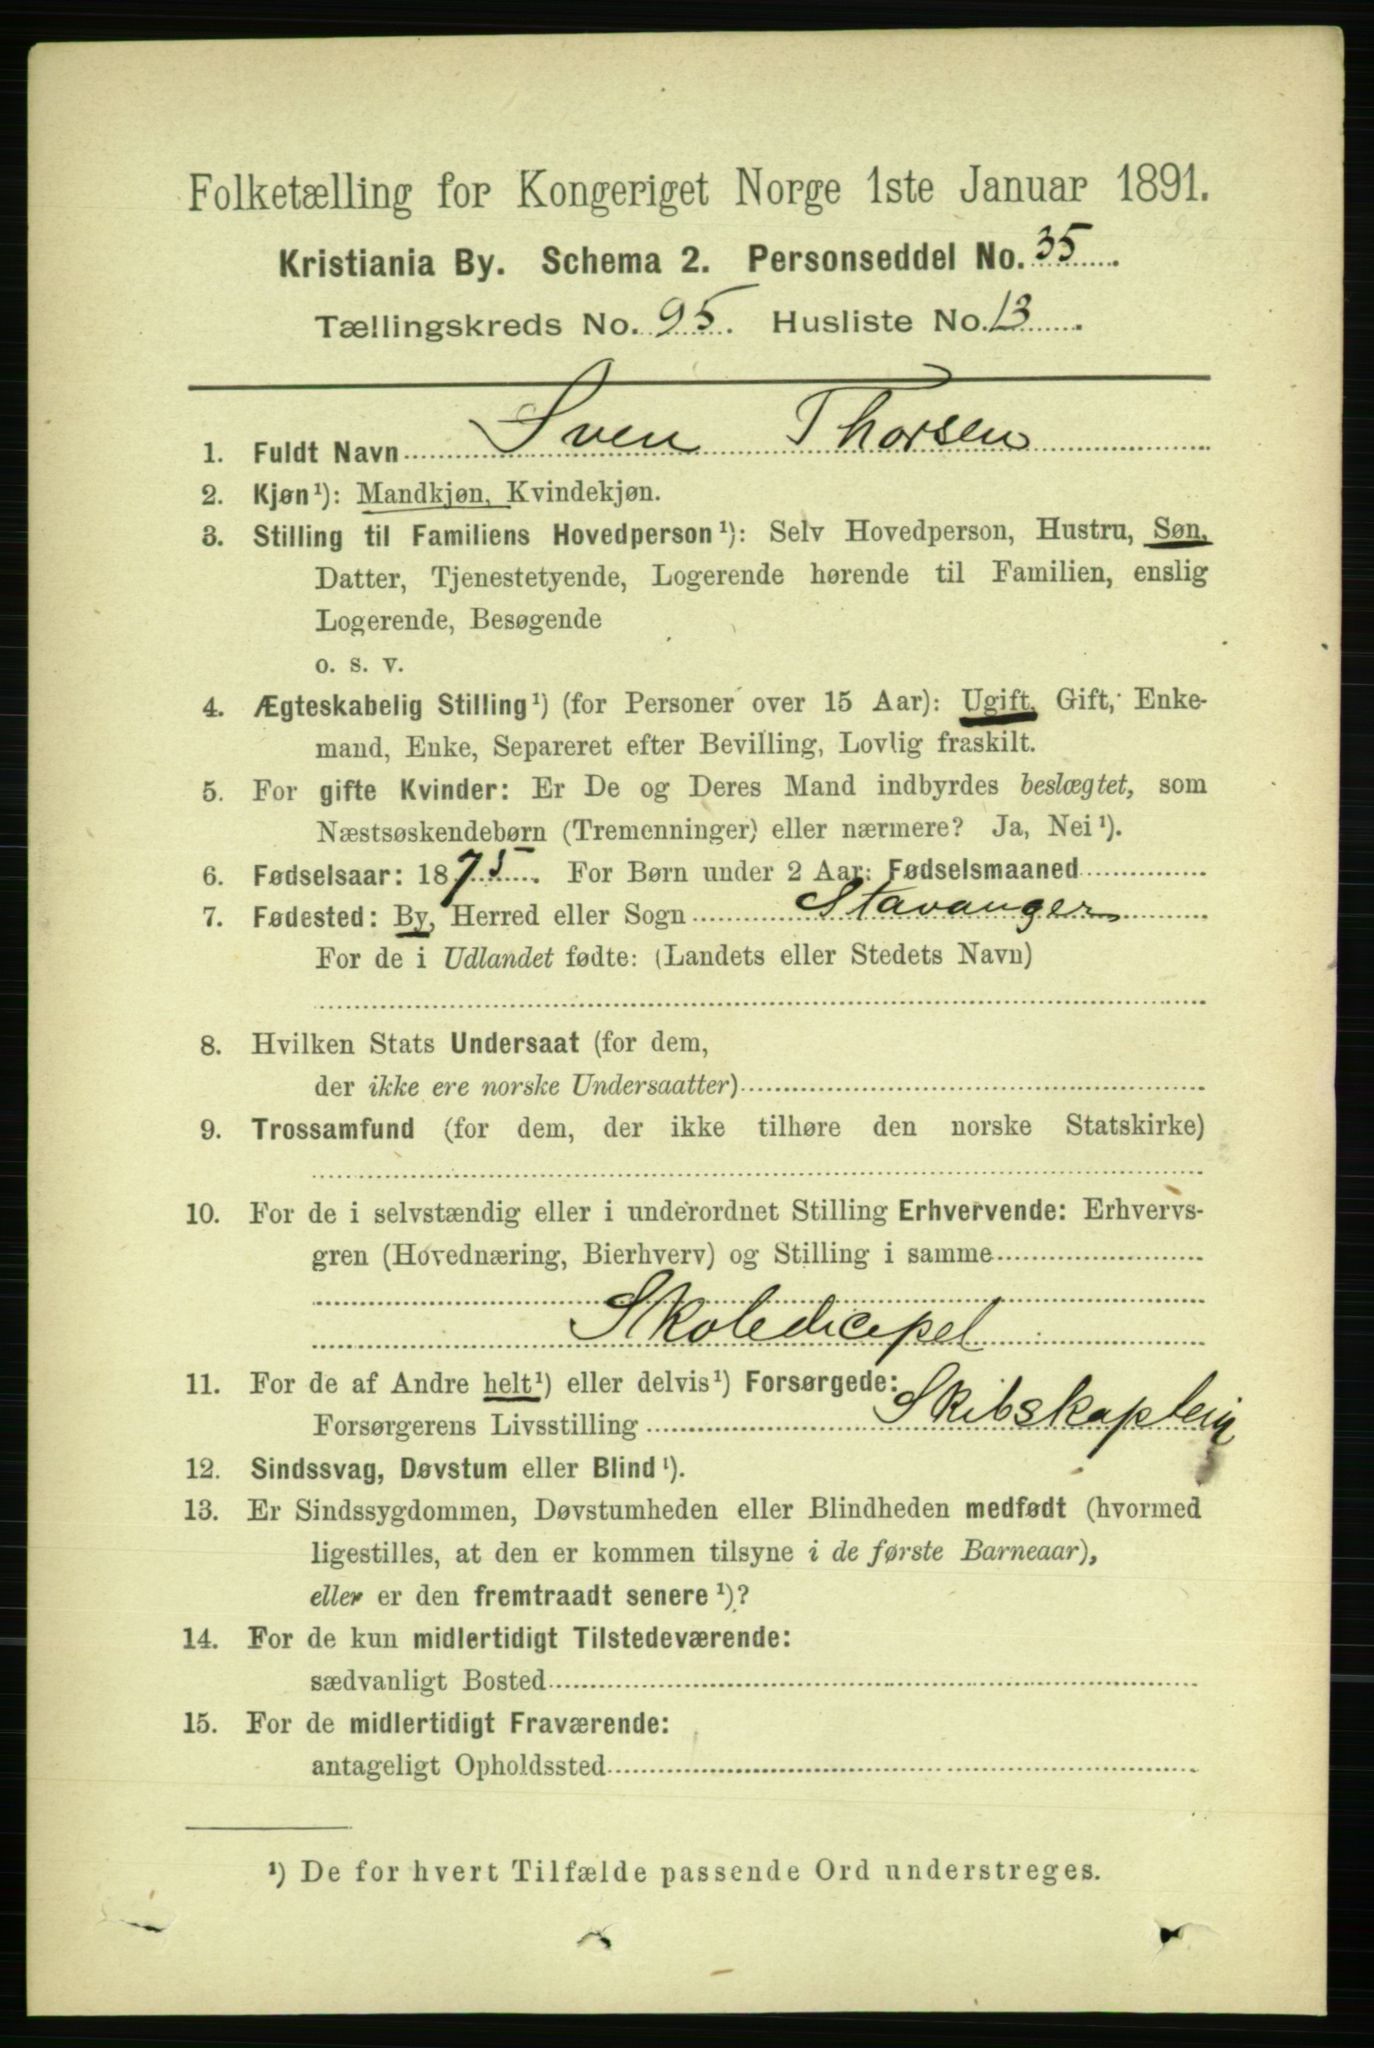 Folketælling for Kongeriget Norge 1ste Januar 1891.
Kristiania By. Schema 2. Personseddel No. 35.
Tællingskreds No. 95. Husliste No. 13.
1. Fuldt Navn Sven Thorsen
2. Kjøn¹): Mandkjøn, Kvindekjøn.
3. Stilling til Familiens Hovedperson¹): Selv Hovedperson, Hustru, Søn,
Datter, Tjenestetyende, Logerende hørende til Familien, enslig
Logerende, Besøgende
o. s. v.
4. Ægteskabelig Stilling¹) (for Personer over 15 Aar): Ugift, Gift, Enke-
mand, Enke, Separeret efter Bevilling, Lovlig fraskilt.
5. For gifte Kvinder: Er De og Deres Mand indbyrdes beslægtet, som
Næstsøskendebørn (Tremenninger) eller nærmere? Ja, Nei¹).
6. Fødselsaar: 1875. For Børn under 2 Aar: Fødselsmaaned
7. Fødested: By, Herred eller Sogn Stavanger
For de i Udlandet fødte: (Landets eller Stedets Navn)
8. Hvilken Stats Undersaat (for dem,
der ikke ere norske Undersaatter)
9. Trossamfund (for dem, der ikke tilhøre den norske Statskirke)
10. For de i selvstændig eller i underordnet Stilling Erhvervende: Erhvervs-
gren (Hovednæring, Bierhverv) og Stilling i samme
Skoledicepel
11. For de af Andre helt¹) eller delvis¹) Forsørgede:
Forsørgerens Livsstilling Skibskaptein
12. Sindssvag, Døvstum eller Blind¹).
13. Er Sindssygdommen, Døvstumheden eller Blindheden medfødt (hvormed
ligestilles, at den er kommen tilsyne i de første Barneaar),
eller er den fremtraadt senere¹)?
14. For de kun midlertidigt Tilstedeværende:
sædvanligt Bosted
15. For de midlertidigt Fraværende:
antageligt Opholdssted
¹) De for hvert Tilfælde passende Ord understreges.